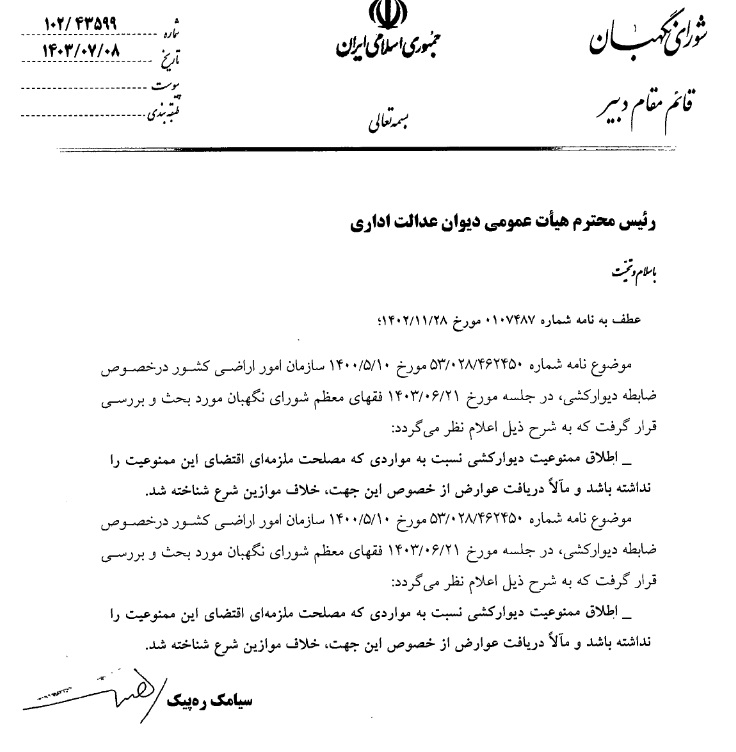 شورای نگهبان
قائم مقام دبیر
جمهوری اسلامی ایران
بسمه تعالی
شماره ۱۰۲/۴۳۵۹۹
تاریخ ۱۴۰۳/۰۷/۰۸
پیوست
طبقه‌بندی
رئیس محترم هیأت عمومی دیوان عدالت اداری
باسلام و تحیّت
عطف به نامه شماره ۰۱۰۷۴۸۷ مورخ ۱۴۰۲/۱۱/۲۸؛
موضوع نامه شماره ۵۳/۰۲۸/۴۶۲۴۵۰ مورخ ۱۴۰۰/۵/۱۰ سازمان امور اراضی کشور درخصوص
ضابطه دیوارکشی، در جلسه مورخ ۱۴۰۳/۰۶/۲۱ فقهای معظم شورای نگهبان مورد بحث و بررسی
قرار گرفت که به شرح ذیل اعلام نظر می‌گردد:
_ اطلاق ممنوعیت دیوارکشی نسبت به مواردی که مصلحت ملزمه‌ای اقتضای این ممنوعیت را
نداشته باشد و مآلاً دریافت عوارض از خصوص این جهت، خلاف موازین شرع شناخته شد.
موضوع نامه شماره ۵۳/۰۲۸/۴۶۲۴۵۰ مورخ ۱۴۰۰/۵/۱۰ سازمان امور اراضی کشور درخصوص
ضابطه دیوارکشی، در جلسه مورخ ۱۴۰۳/۰۶/۲۱ فقهای معظم شورای نگهبان مورد بحث و بررسی
قرار گرفت که به شرح ذیل اعلام نظر می‌گردد:
_ اطلاق ممنوعیت دیوارکشی نسبت به مواردی که مصلحت ملزمه‌ای اقتضای این ممنوعیت را
نداشته باشد و مآلاً دریافت عوارض از خصوص این جهت، خلاف موازین شرع شناخته شد.
سیامک ره‌پیک